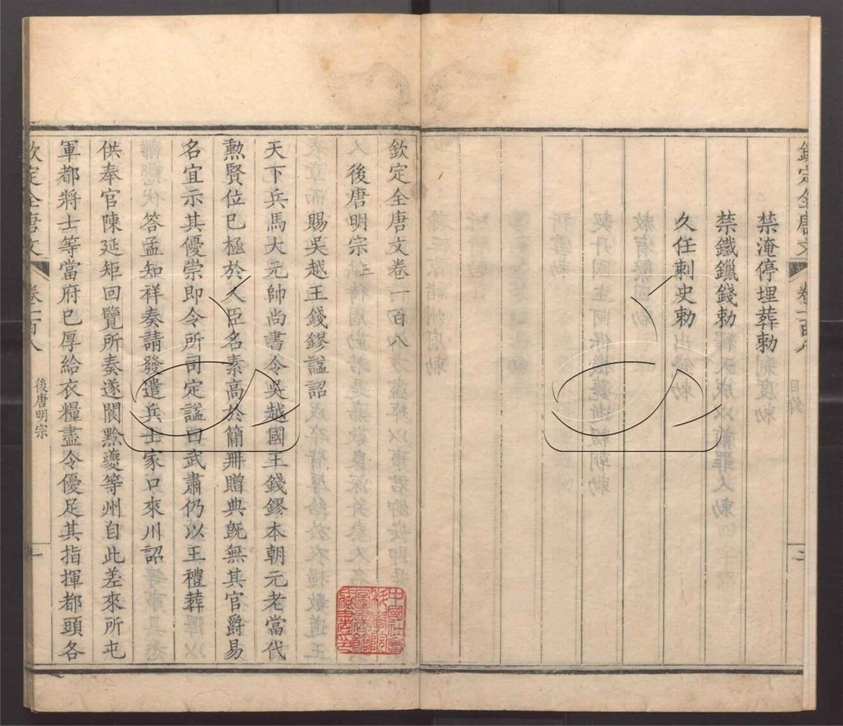 欽定全唐文 卷一百八 目錄 二
禁淹停埋葬勅
禁鐵鑞錢勅
久任刺史勅
欽定全唐文卷一百八
後唐明宗三
賜吳越王錢鏐諡詔
天下兵馬大元帥尚書令吳越國王錢鏐本朝元老當代
勲賢位已極於人臣名素高於簡冊贈典旣無其官爵易
名宜示其優崇即令所司定諡曰武肅仍以王禮葬
答孟知祥奏請發遣兵士家口來川詔
供奉官陳延矩回覽所奏遂閬黔夔等州自此差來所屯
軍都將士等當府已厚給衣糧盡令優足其指揮都頭各
欽定全唐文 卷一百八 後唐明宗 一